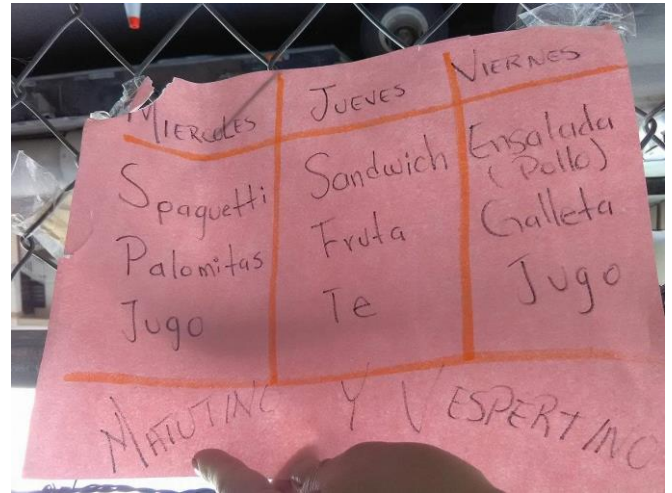 MIERCOLES JUEVES VIERNES
Spaguetti Sandwich Ensalada
(Pollo)
Palomitas Fruta Galleta
Jugo Te Jugo
MATUTINO Y VESPERTINO